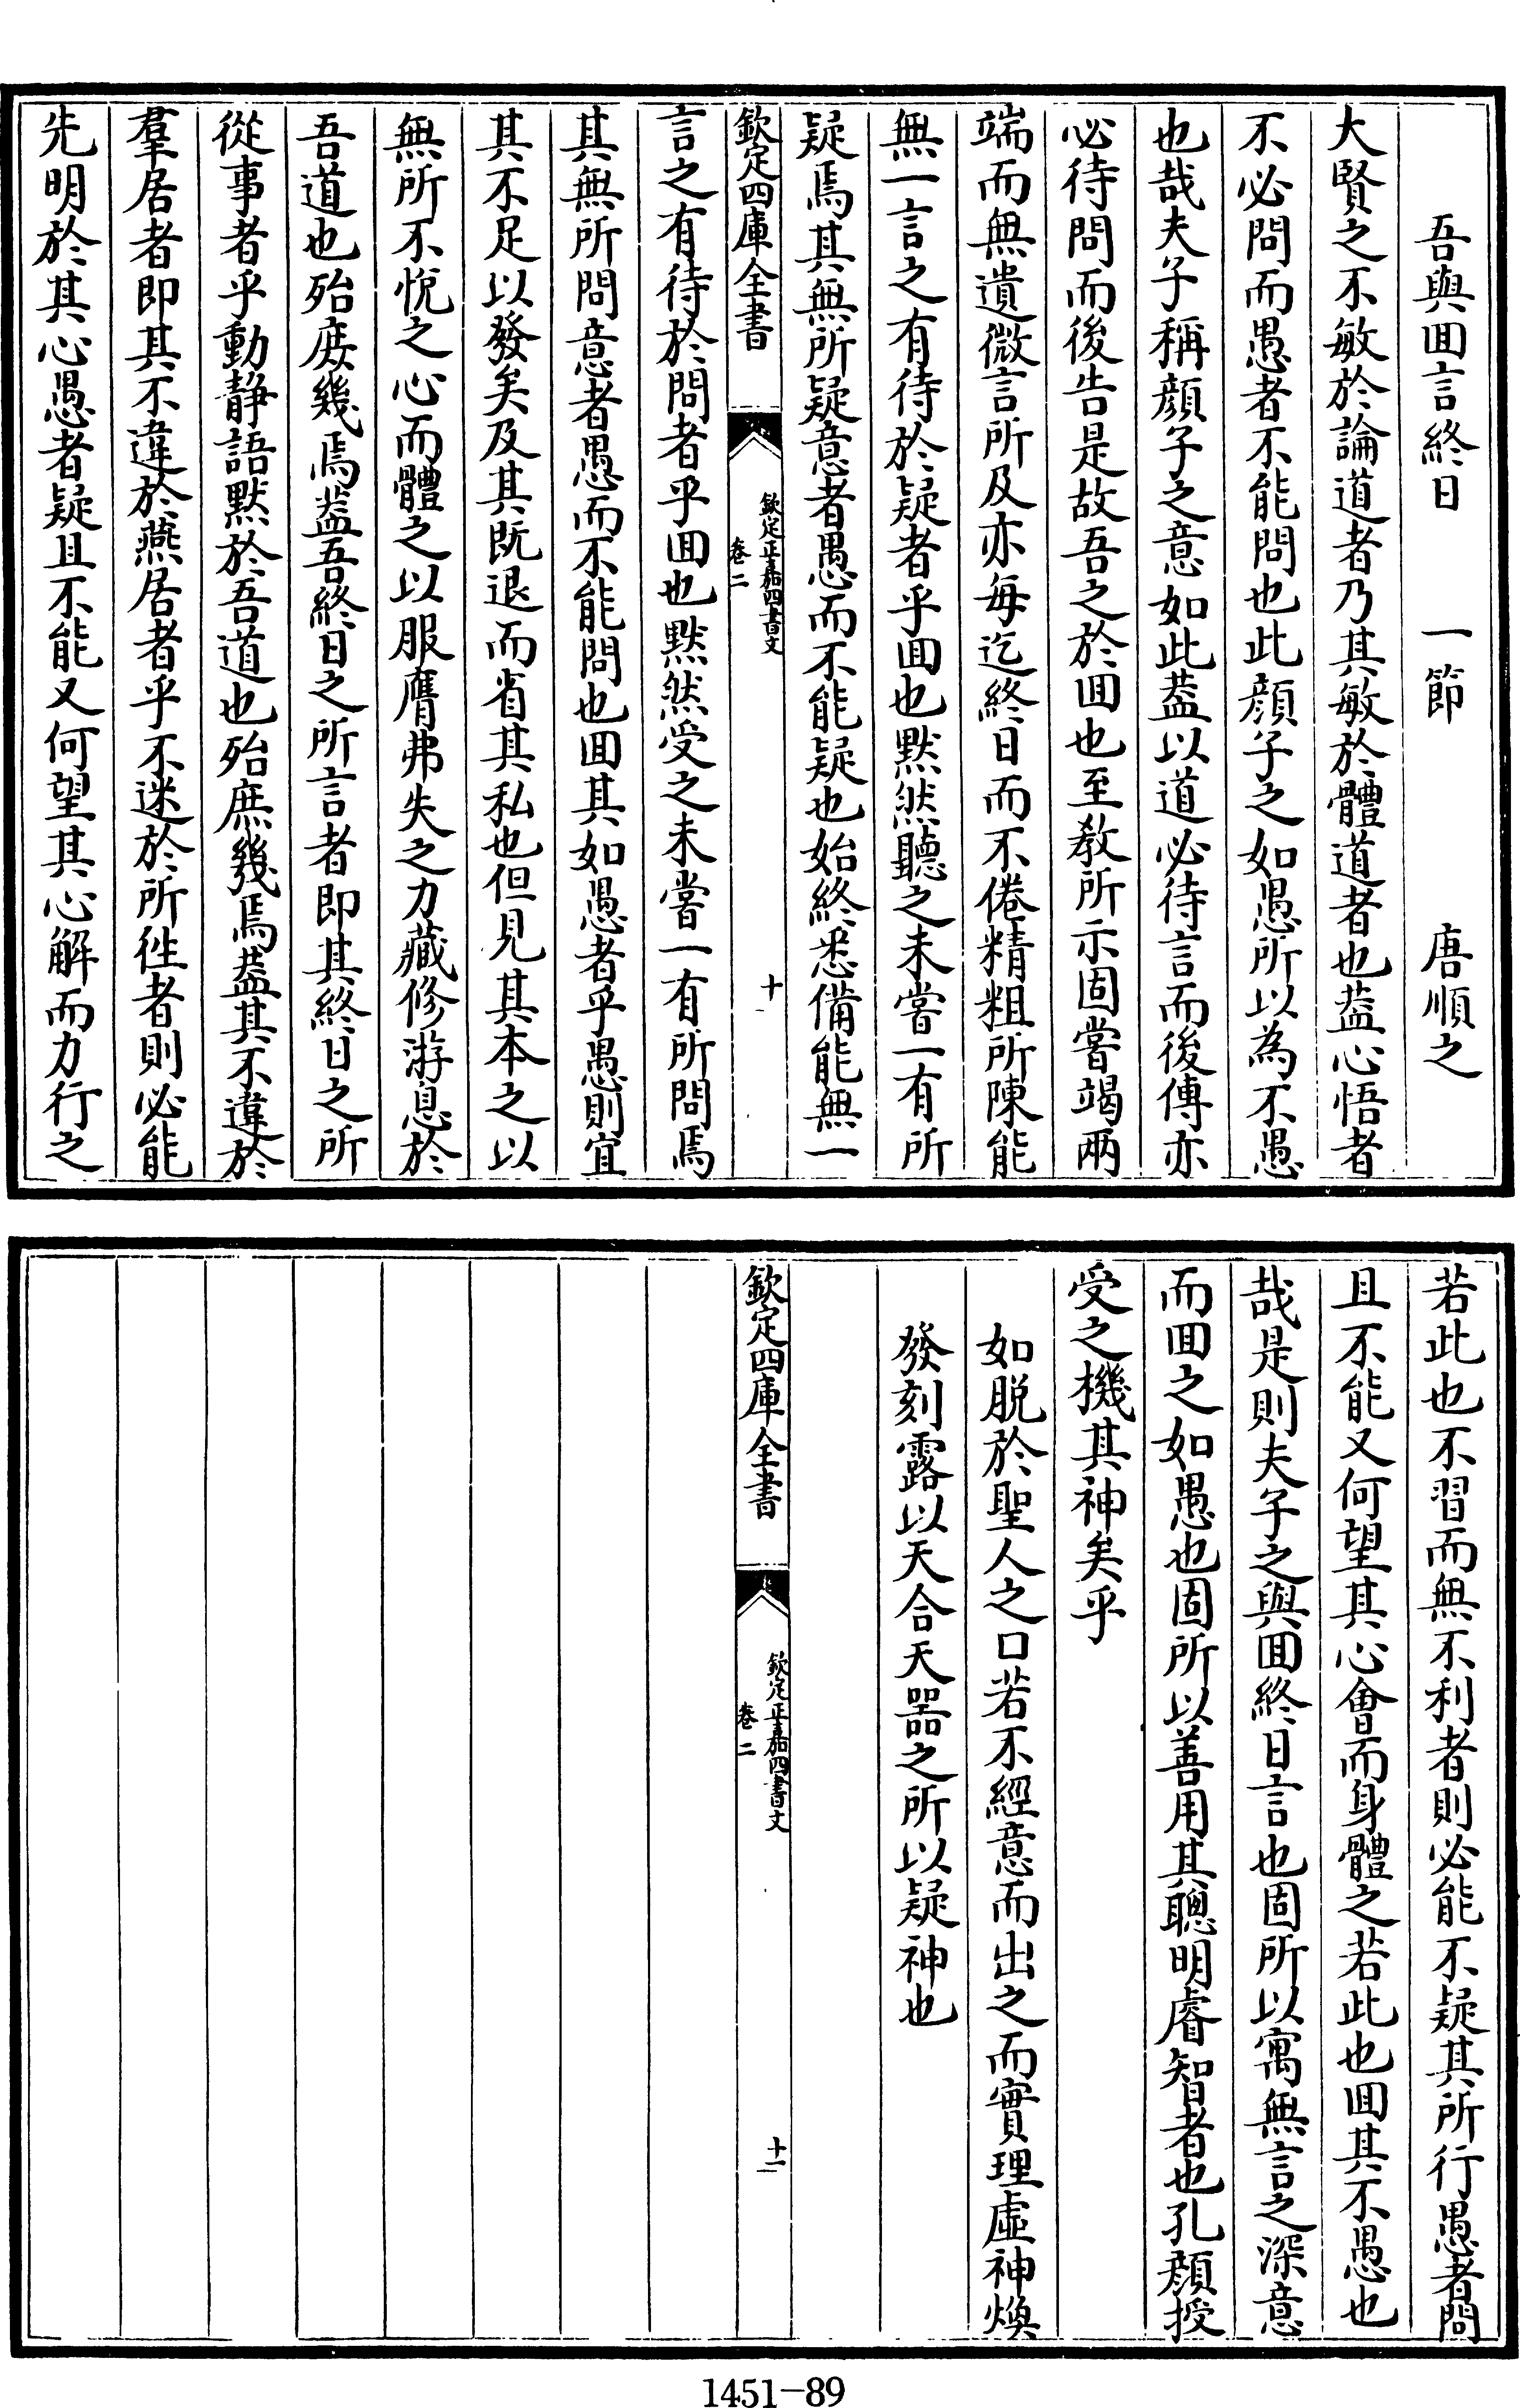 吾與囬言終日　一節　唐順之
大賢之不敏於論道者乃其敏於體道者也蓋心悟者
不必問而愚者不能問也此顔子之如愚所以為不愚
也哉夫子稱顔子之意如此蓋以道必待言而後傳亦
必待問而後告是故吾之於囬也至教所示固嘗竭兩
端而無遺微言所及亦每迄終日而不倦精粗所陳能
無一言之有待於疑者乎囬也黙然聽之未嘗一有所
疑焉其無所疑意者愚而不能疑也始終悉備能無一
欽定四庫全書
欽定正嘉四書文
卷二
十
言之有待於問者乎囬也黙然受之未嘗一有所問焉
其無所問意者愚而不能問也囬其如愚者乎愚則宜
其不足以發矣及其既退而省其私也但見其本之以
無所不悅之心而體之以服膺弗失之力藏修游息於
吾道也殆庶幾焉蓋吾終日之所言者即其終日之所
從事者乎動靜語黙於吾道也殆庶幾焉蓋其不違於
羣居者即其不違於燕居者乎不迷於所徃者則必能
先明於其心愚者疑且不能又何望其心解而力行之
若此也不習而無不利者則必能不疑其所行愚者問
且不能又何望其心會而身體之若此也囬其不愚也
哉是則夫子之與囬終日言也固所以寓無言之深意
而囬之如愚也固所以善用其聰明睿智者也孔顔授
受之機其神矣乎
如脱於聖人之口若不經意而出之而實理虛神煥
發刻露以天合天噐之所以疑神也
欽定四庫全書
欽定正嘉四書文
卷二
十一
1451-89